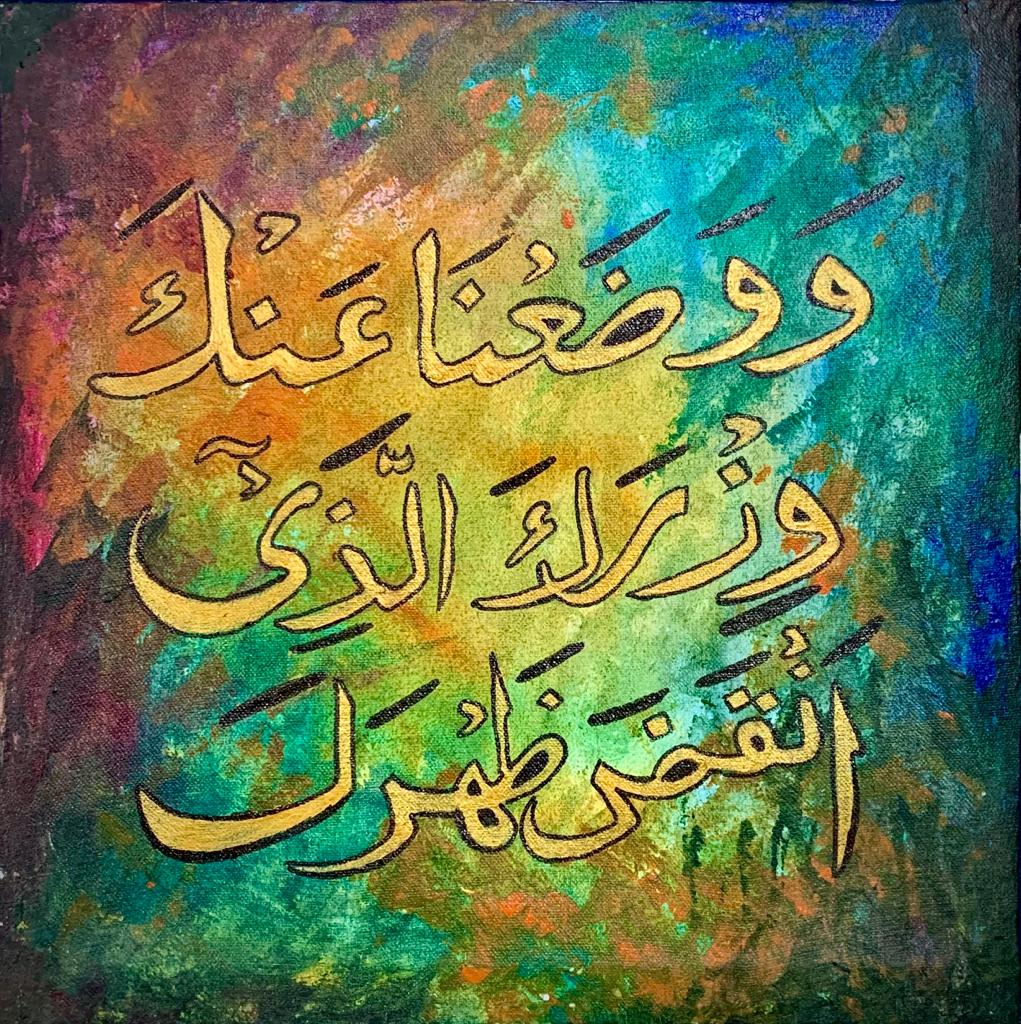 وَوَضَعْنَا عَنْكَ
وِزْرَكَ الَّذِیْۤ
اَنْقَضَ ظَهْرَكَ